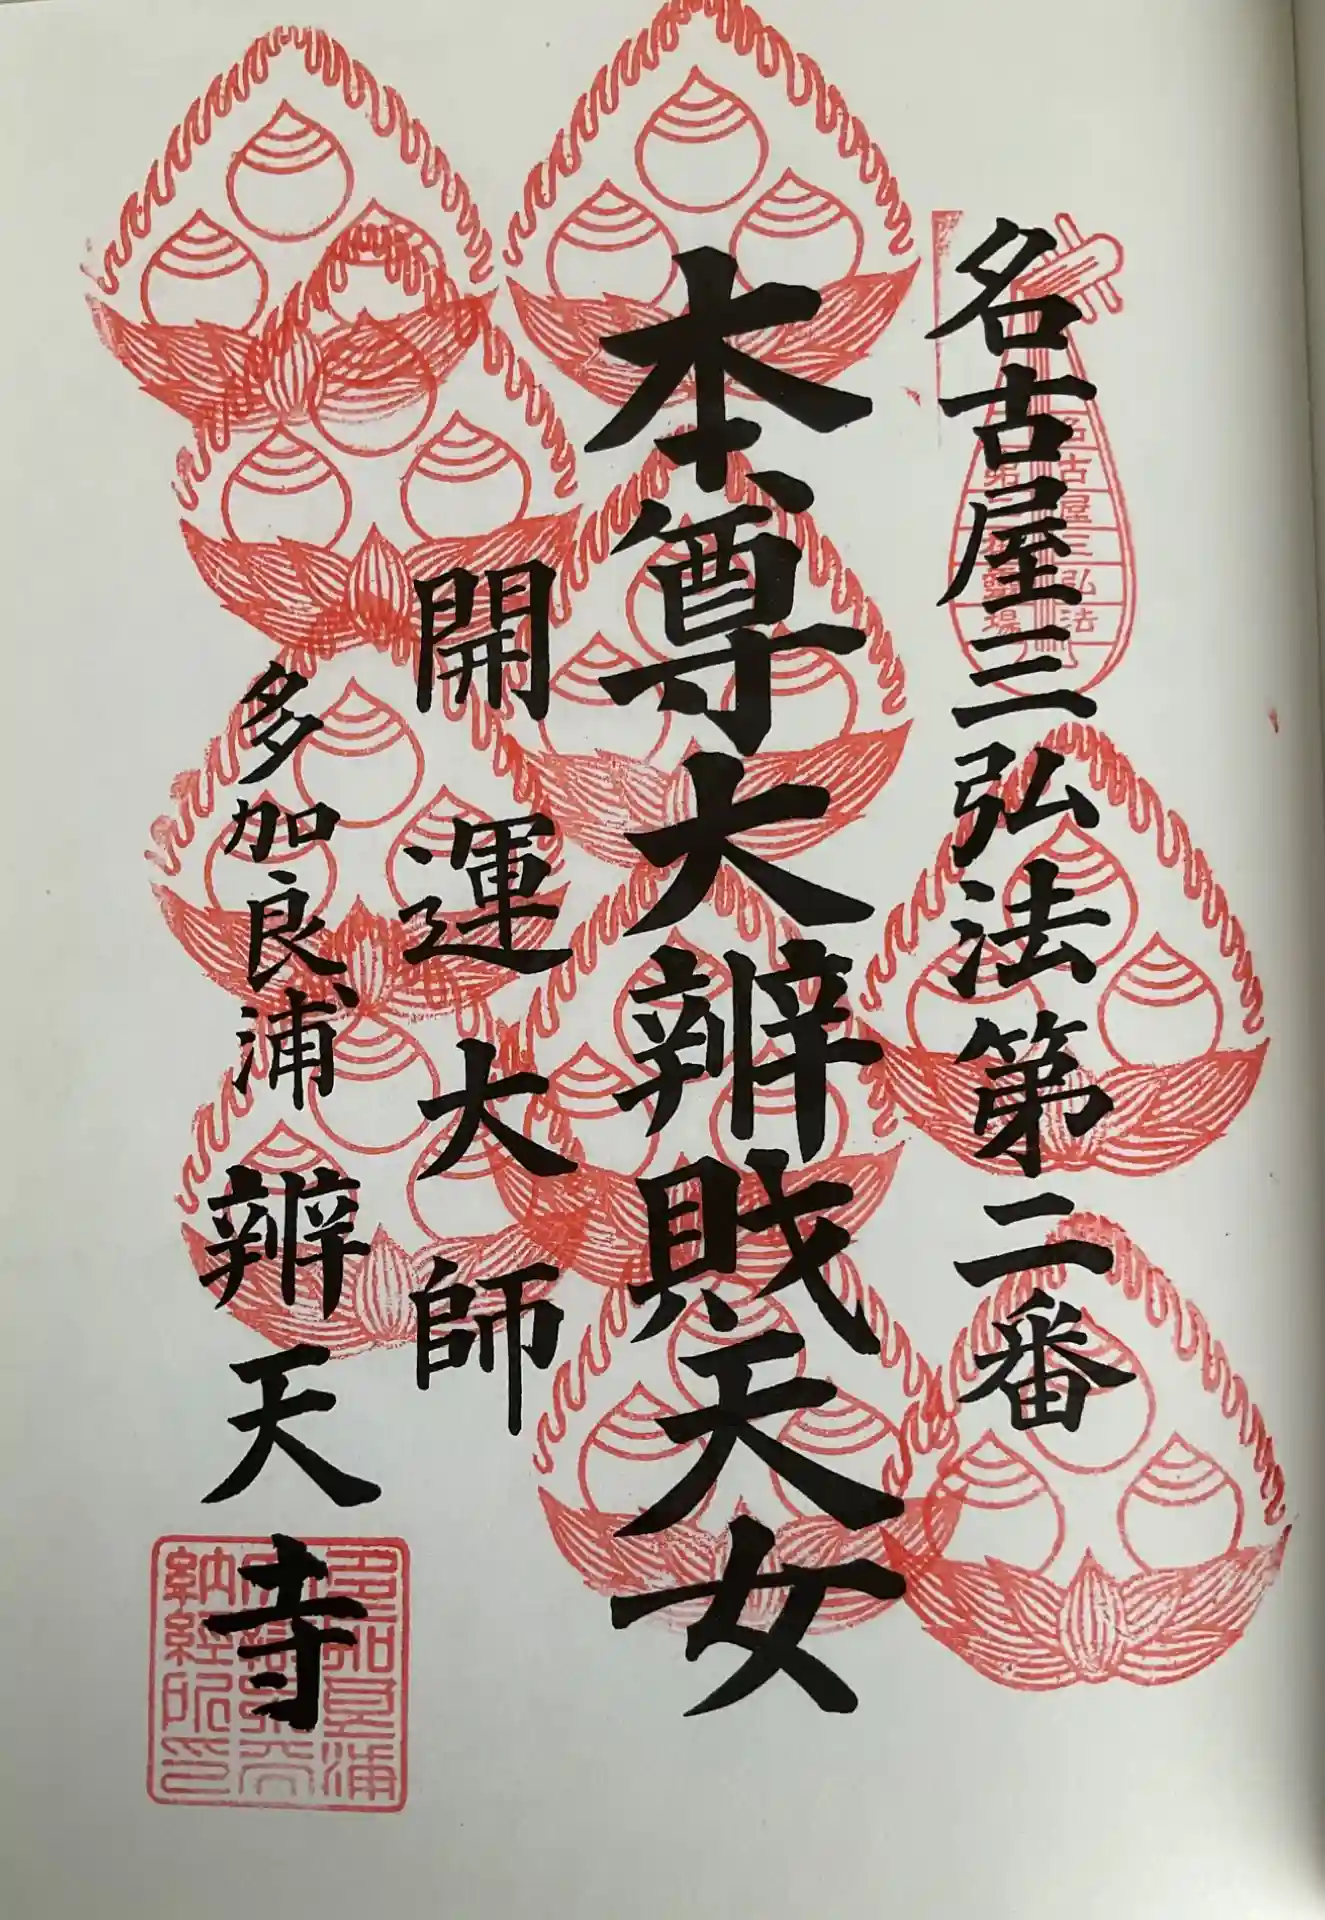 名古屋三弘法第二番
本尊大辨財天女
開運大師
多加良浦辨天寺
名古屋三弘法
霊場
納経所印